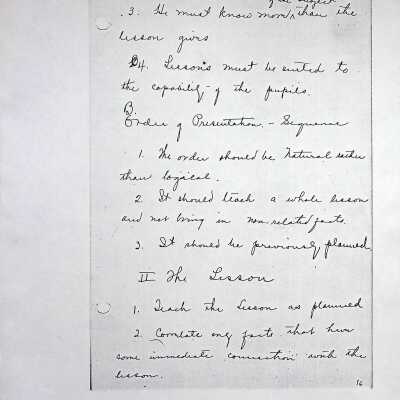 the subject
3. He must know more than the
lesson gives
4. Lessons must be suited to
the capability of the pupils.
B.
Order of Presentation. - Sequence
1. The order should be Natural rather
than logical.
2. It should teach a whole lesson
and not bring in non related facts.
3. It should be previously planned.
II The Lesson
1. Teach the lesson as planned
2. Correlate only facts that have
some immediate connection with the
lesson.
16